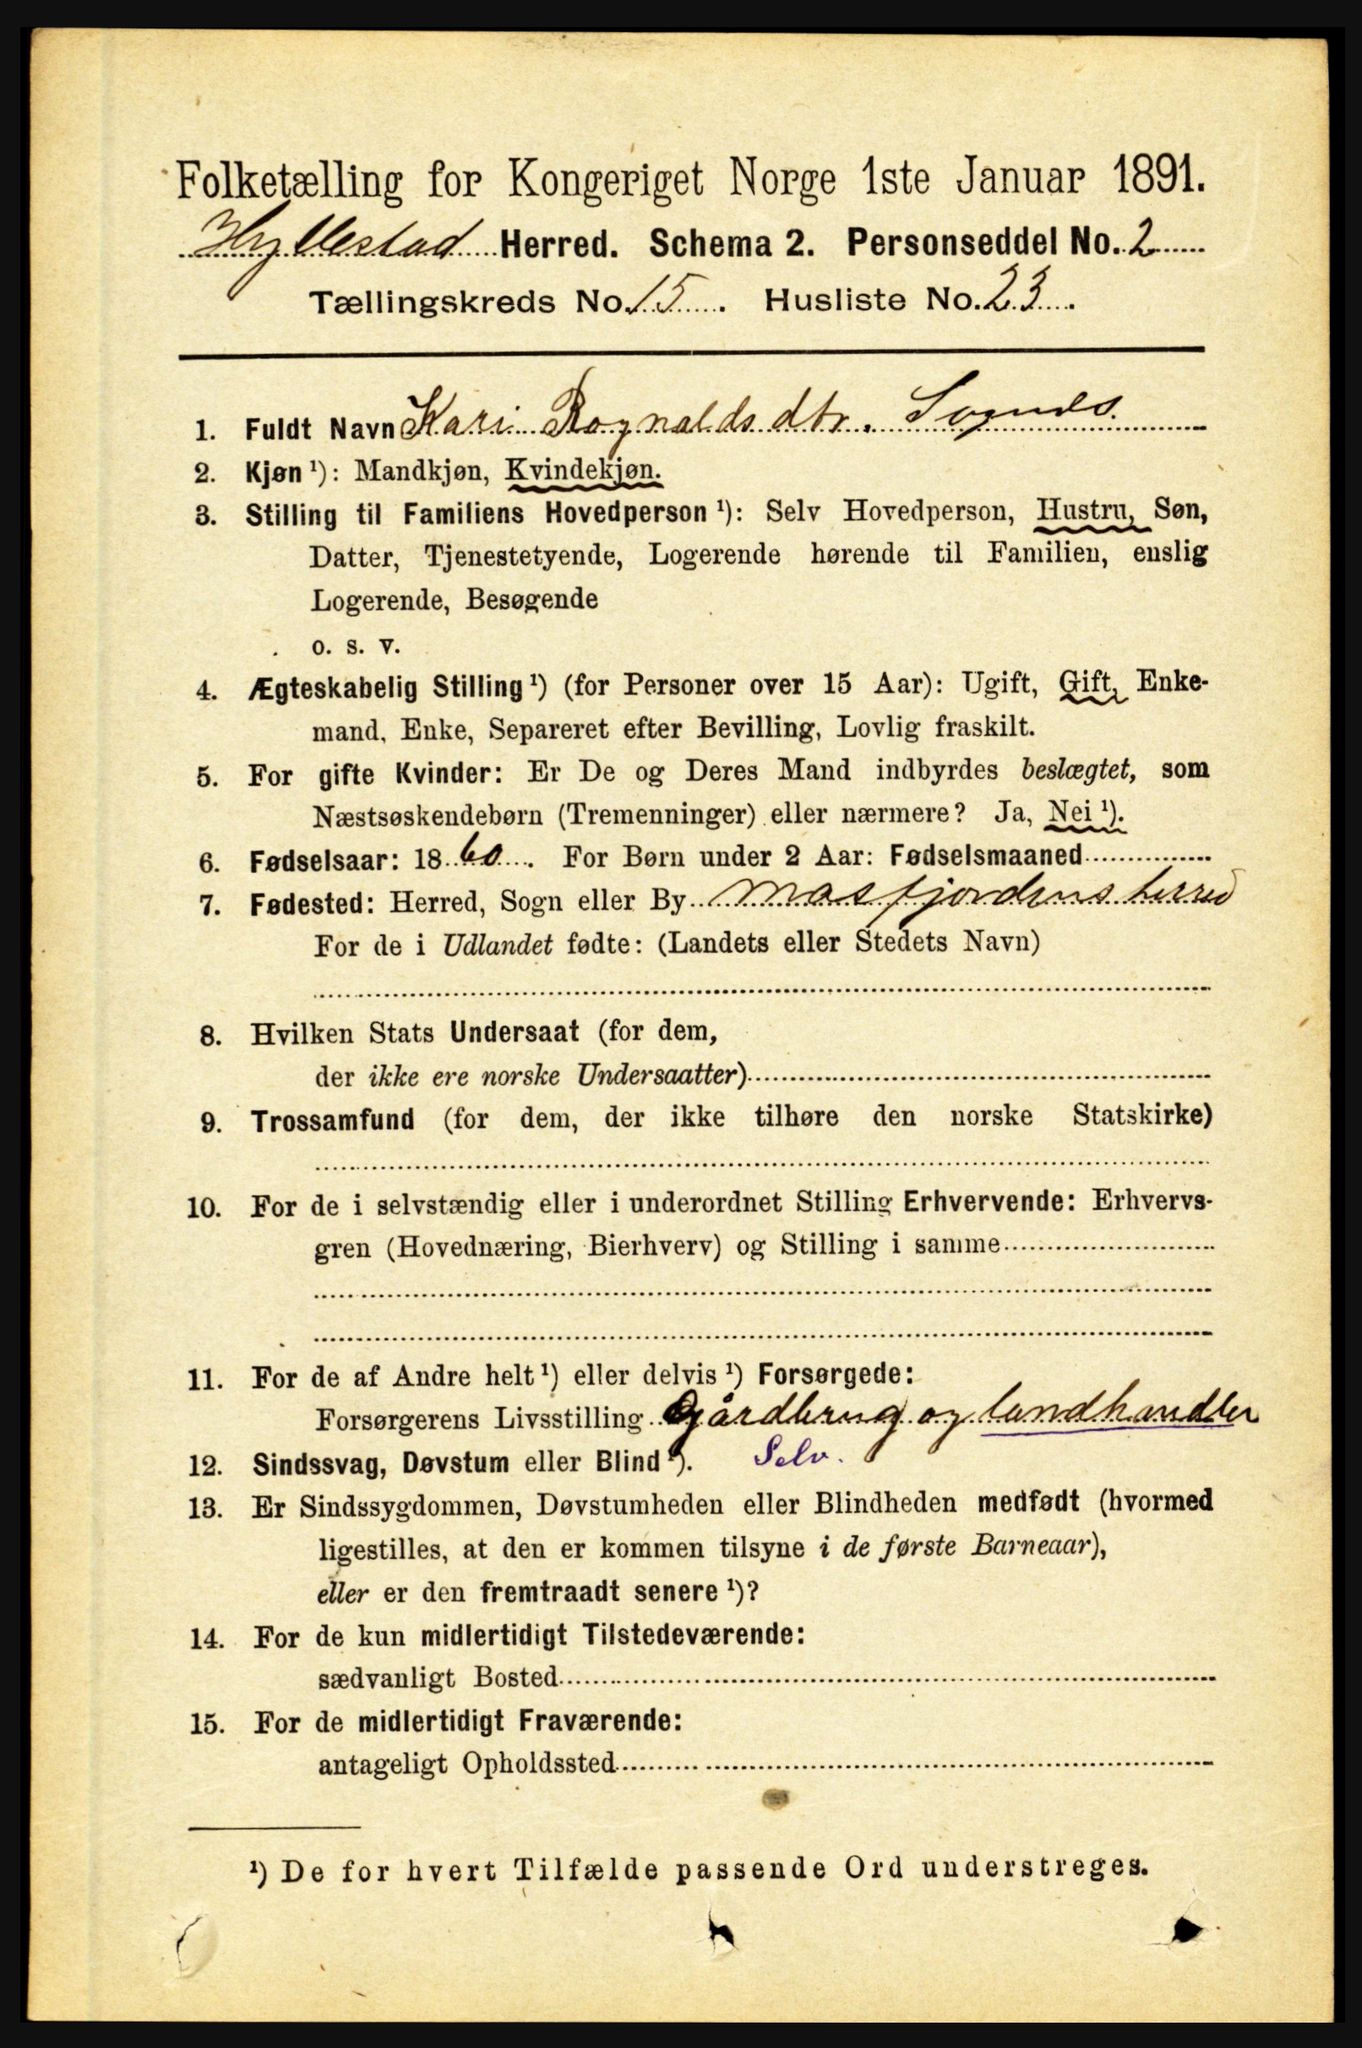 Folketælling for Kongeriget Norge 1ste Januar 1891.
Hyllestad Herred. Schema 2. Personseddel No. 2
Tællingskreds No. 15. Husliste No. 23.
1. Fuldt Navn Kari Rognaldsdtr. Sognes
2. Kjøn ¹): Mandkjøn, Kvindekjøn.
3. Stilling til Familiens Hovedperson ¹): Selv Hovedperson, Hustru, Søn,
Datter, Tjenestetyende, Logerende hørende til Familien, enslig
Logerende, Besøgende
o. s. v.
4. Ægteskabelig Stilling ¹) (for Personer over 15 Aar): Ugift, Gift, Enke-
mand, Enke, Separeret efter Bevilling, Lovlig fraskilt.
5. For gifte Kvinder: Er De og Deres Mand indbyrdes beslægtet, som
Næstsøskendebørn (Tremenninger) eller nærmere? Ja, Nei ¹).
6. Fødselsaar: 1860. For Børn under 2 Aar: Fødselsmaaned
7. Fødested: Herred, Sogn eller By Masfjordens herred
For de i Udlandet fødte: (Landets eller Stedets Navn)
8. Hvilken Stats Undersaat (for dem,
der ikke ere norske Undersaatter)
9. Trossamfund (for dem, der ikke tilhøre den norske Statskirke)
10. For de i selvstændig eller i underordnet Stilling Erhvervende: Erhvervs-
gren (Hovednæring, Bierhverv) og Stilling i samme
11. For de af Andre helt ¹) eller delvis ¹) Forsørgede:
Forsørgerens Livsstilling Gårdbrug og landhandler
12. Sindssvag, Døvstum eller Blind ¹). Selv.
13. Er Sindssygdommen, Døvstumheden eller Blindheden medfødt (hvormed
ligestilles, at den er kommen tilsyne i de første Barneaar),
eller er den fremtraadt senere ¹)?
14. For de kun midlertidigt Tilstedeværende:
sædvanligt Bosted
15. For de midlertidigt Fraværende:
antageligt Opholdssted
¹) De for hvert Tilfælde passende Ord understreges.